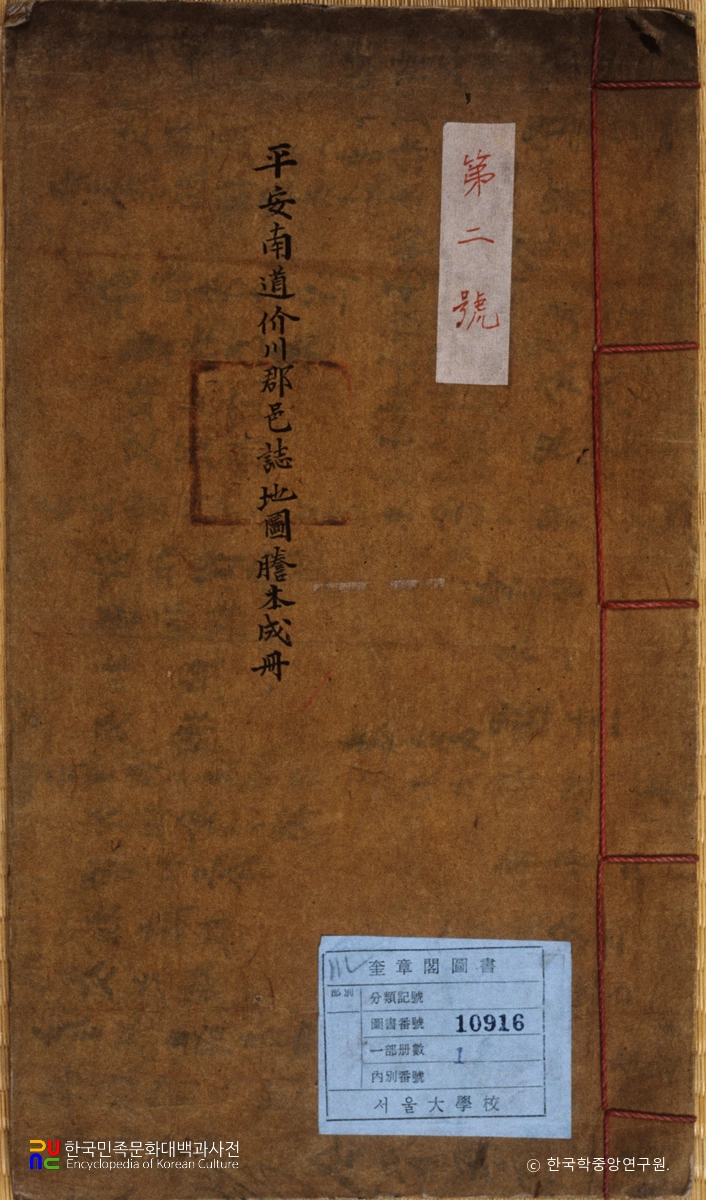 第二號
平安南道价川郡邑誌地圖謄本成冊
奎章閣圖書
部別
分類記號
圖書番號 10916
一部册數 1
內別番號
서울大學校
한국민족문화대백과사전
Encyclopedia of Korean Culture
© 한국학중앙연구원.